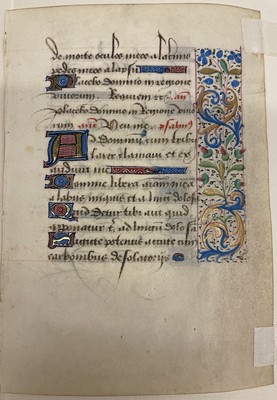 de morte oculos meos a lacrimis
pedes meos a lapsu
Placebo domino in regione
vivorum. Requiem et. an
placebo domino in regione vivo
rum an Heu me. psalmus
Ad dominum cum tribu
larer clamavi et ex
audivit me
Domine libera animam mea
a labiis iniquis et a lingua dolosa
Quid detur tibi aut quid
apponatur t. ad linguam dolosa
Sagitte potentis acute cum
carbonibus desolatoriis